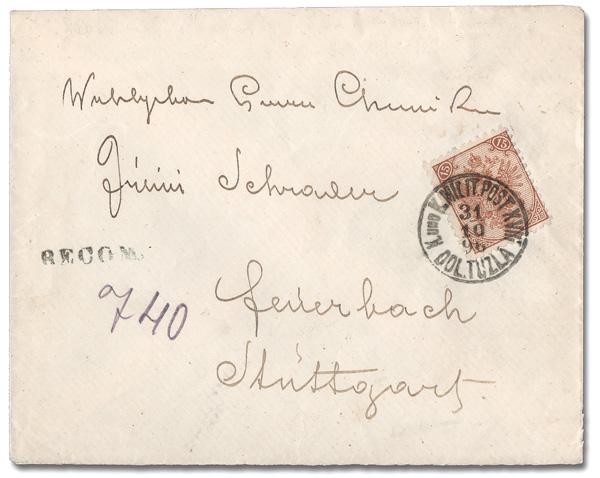 Wohlgeboren Herrn Chemiker
Julius Schrader
RECOM.
740
Feuerbach
Stuttgart.
15
15
K. und K. MILIT. POST XVIII
31
10
96
DOL. TUZLA